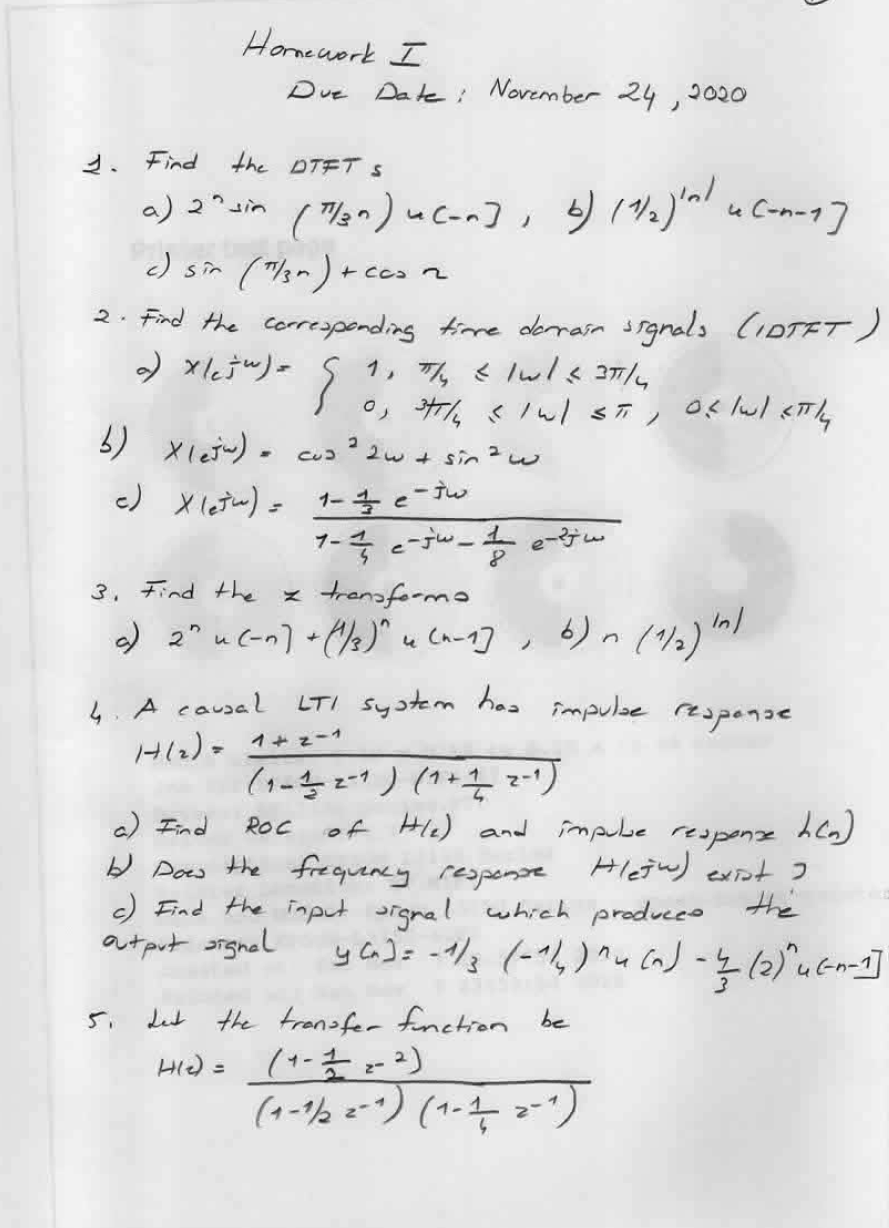 Homework I
Due Date: November 24, 2020
1. Find the DTFT s
a) 2^n sin (π/3 n) u[-n], b) (1/2)^|n| u[-n-1]
c) sin (π/3 n) + cos n
2. Find the corresponding time domain signals (IDTFT)
a) X(e^jw) = { 1, π/4 ≤ |w| ≤ 3π/4
0, 3π/4 ≤ |w| ≤ π, 0 ≤ |w| ≤ π/4
b) X(e^jw) = cos^2 2w + sin^2 w
c) X(e^jw) = (1 - 1/3 e^-jw) / (1 - 1/4 e^-jw - 1/8 e^-2jw)
3. Find the z transforms
a) 2^n u[-n] + (1/3)^n u[n-1], b) n (1/2)^|n|
4. A causal LTI system has impulse response
H(z) = (1 + z^-1) / ((1 - 1/2 z^-1) (1 + 1/4 z^-1))
a) Find ROC of H(z) and impulse response h[n]
b) Does the frequency response H(e^jw) exist ?
c) Find the input signal which produces the
output signal y[n] = -1/3 (-1/4)^n u[n] - 4/3 (2)^n u[-n-1]
5. Let the transfer function be
H(z) = (1 - 1/2 z^-2) / ((1 - 1/2 z^-1) (1 - 1/4 z^-1))